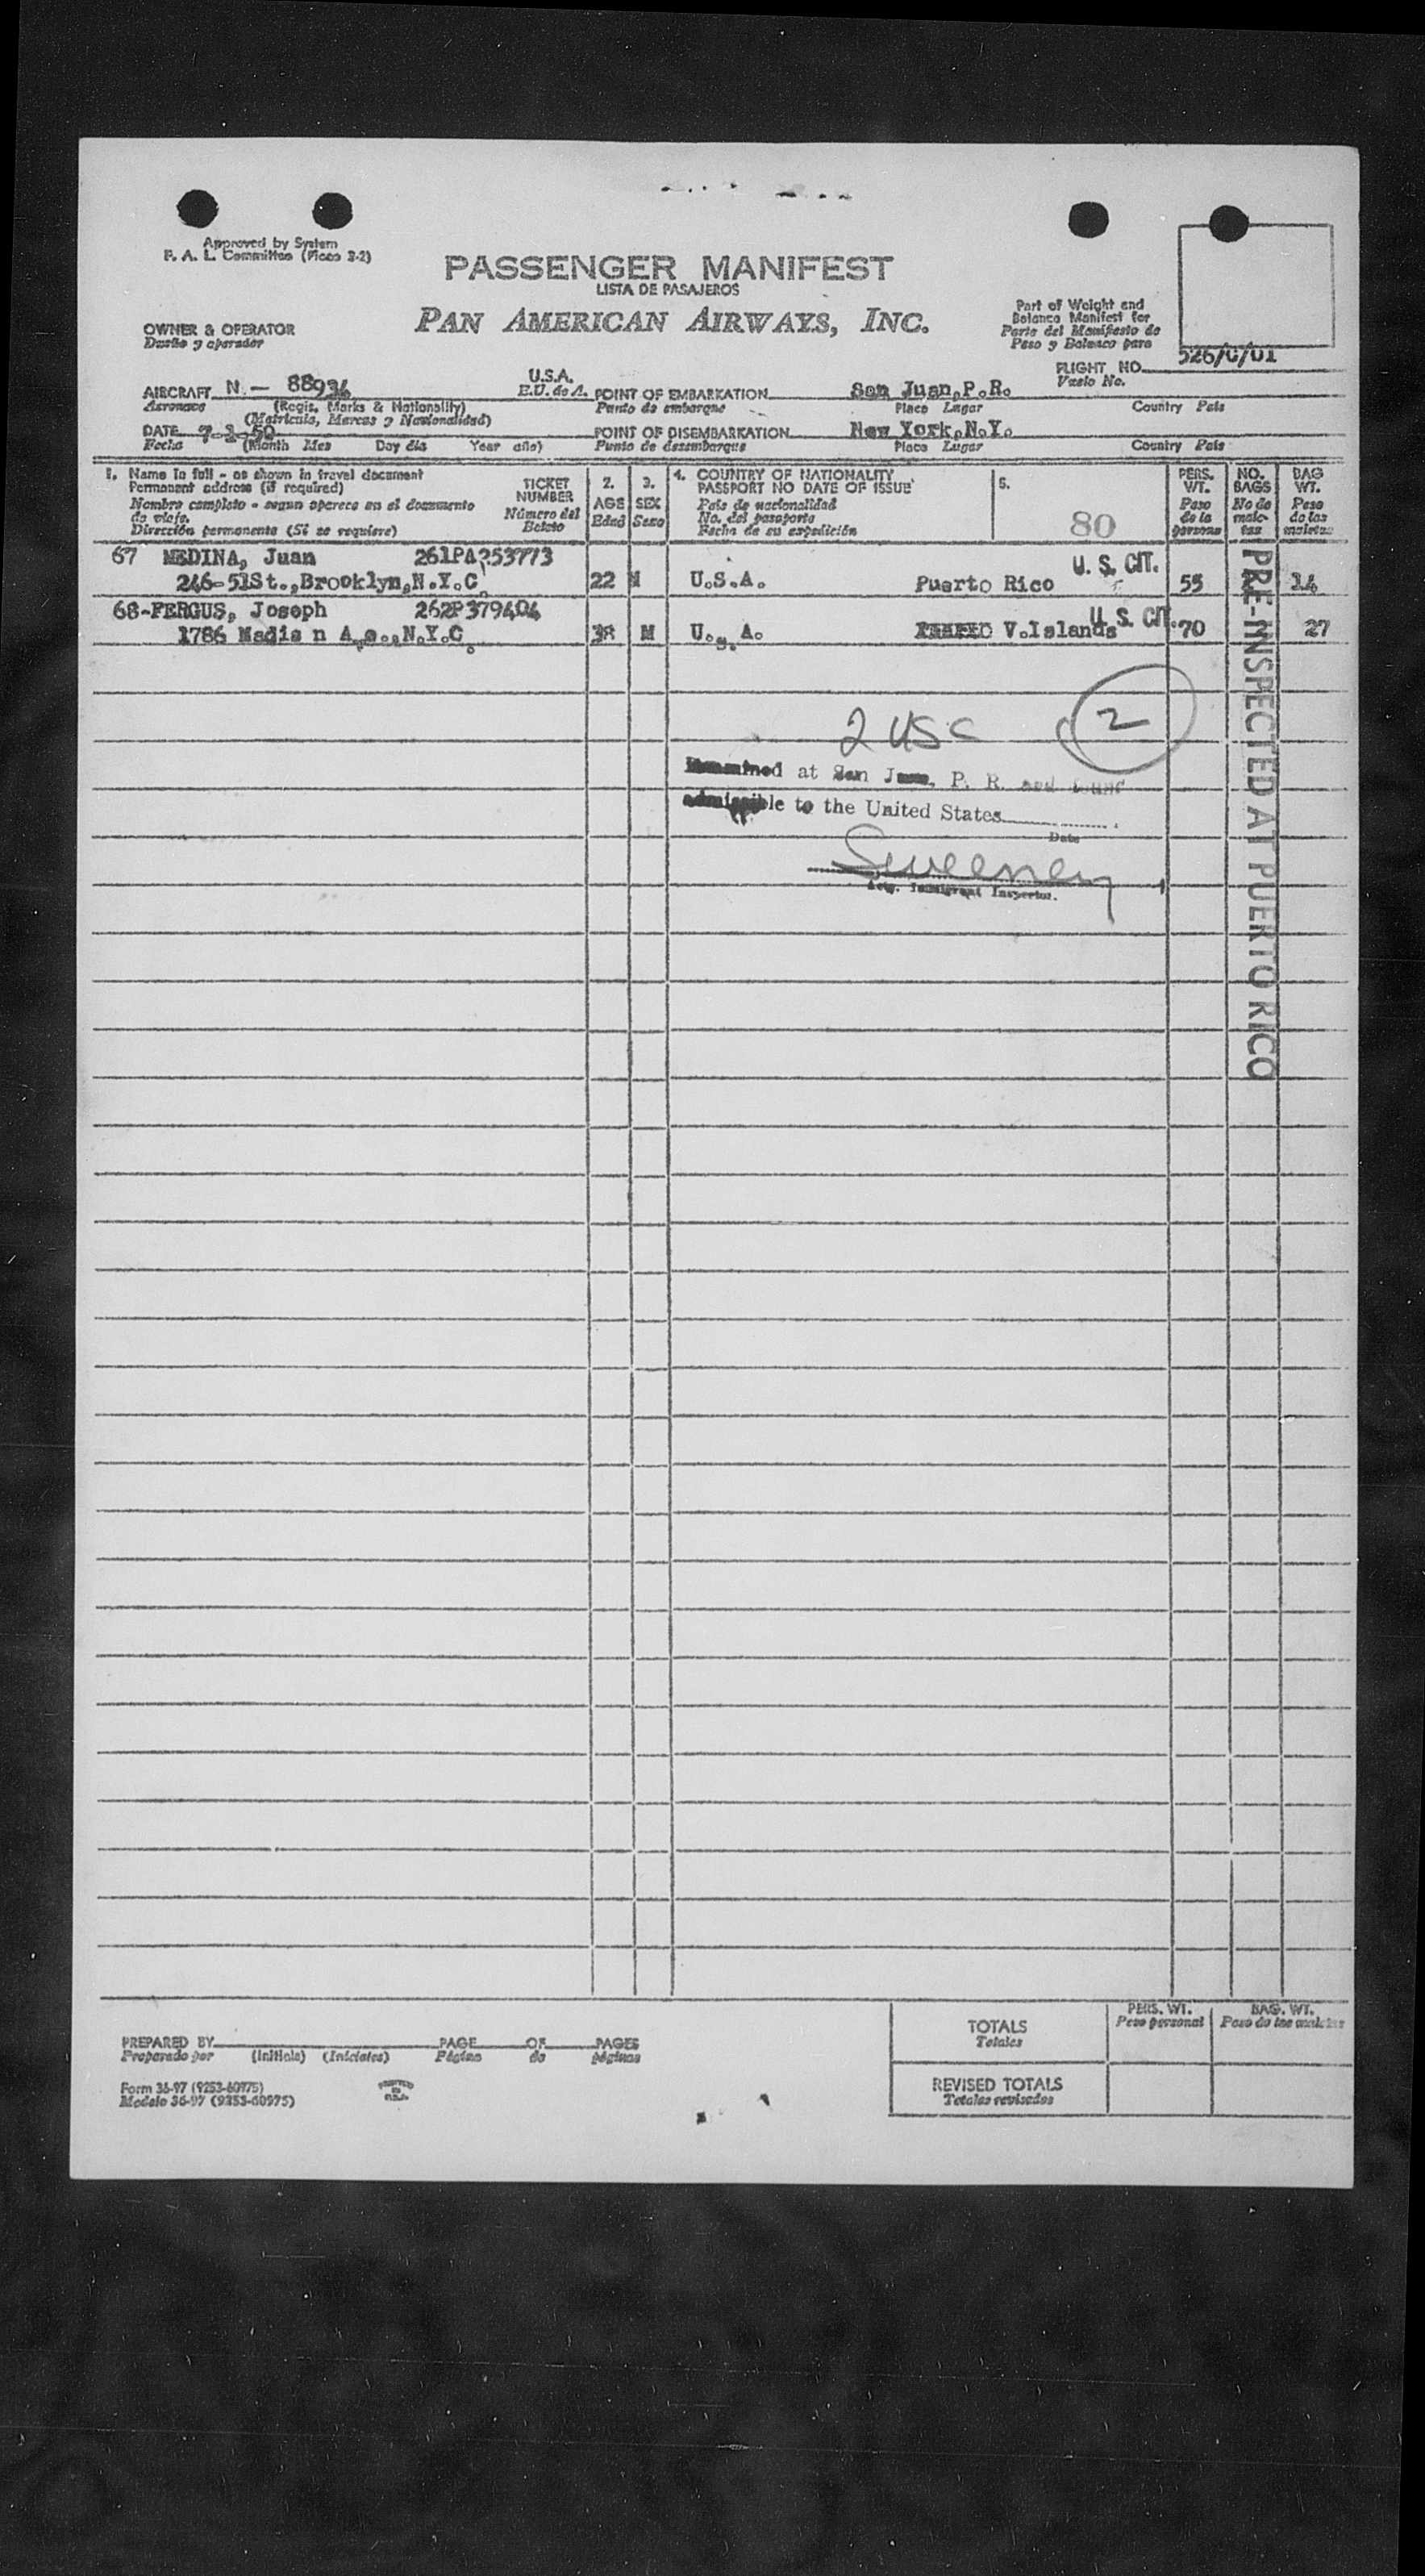 Approved by System
F. A. L. Committee (Ficao 3-2)
PASSENGER MANIFEST
LISTA DE PASAJEROS
PAN AMERICAN AIRWAYS, INC.
OWNER & OPERATOR
Dueño y operador
Part of Weight and
Balance Manifest for
Parte del Manifiesto de
Peso y Balance para
FLIGHT NO. 526/0/01
Vuelo No.
AIRCRAFT N - 88934 U.S.A. POINT OF EMBARKATION San Juan,P.R.
Aeronave (Regis. Marks & Nationality) E.U. de A. Punto de embarque Place Lugar Country País
(Matrícula, Marcas y Nacionalidad)
DATE 7-1-50 POINT OF DISEMBARKATION New York,N.Y.
Fecha (Month Mes Day día Year año) Punto de desembarque Place Lugar Country País
1. Name in full - as shown in travel document
Permanent address (if required)
Nombre completo - segun aparece en el documento
de viaje.
Dirección permanente (Si se requiere)
TICKET
NUMBER
Número del
Boleto
2.
AGE
Edad
3.
SEX
Sexo
4. COUNTRY OF NATIONALITY
PASSPORT NO DATE OF ISSUE
País de nacionalidad
No. del pasaporte
Fecha de su expedición
5.
80
PERS.
WT.
Peso
de la
persona
NO.
BAGS
No de
male-
tas
BAG
WT.
Peso
de las
maletas
67 MEDINA, Juan 261PA253773 U. S. CIT.
246-51St.,Brooklyn,N.Y.C. 22 M U.S.A. Puerto Rico 55 14
68-FERGUS, Joseph 262P379404 U. S. CIT.
1786 Madis n A.e.,N.Y.C. 38 M U.S.A. V.Islands 70 27
PRE-INSPECTED AT PUERTO RICO
2 USC 2
Examined at San Juan, P. R. and found
admissible to the United States
Date
Sweeney
Actg. Immigrant Inspector.
PREPARED BY PAGE OF PAGES
Preparado por (Initials) (Iniciales) Página de páginas
Form 36-97 (9253-60975)
Modelo 36-97 (9253-60975)
PRINTED
IN
U.S.A.
PERS. WT.
Peso personal
BAG. WT.
Peso de las maletas
TOTALS
Totales
REVISED TOTALS
Totales revisados